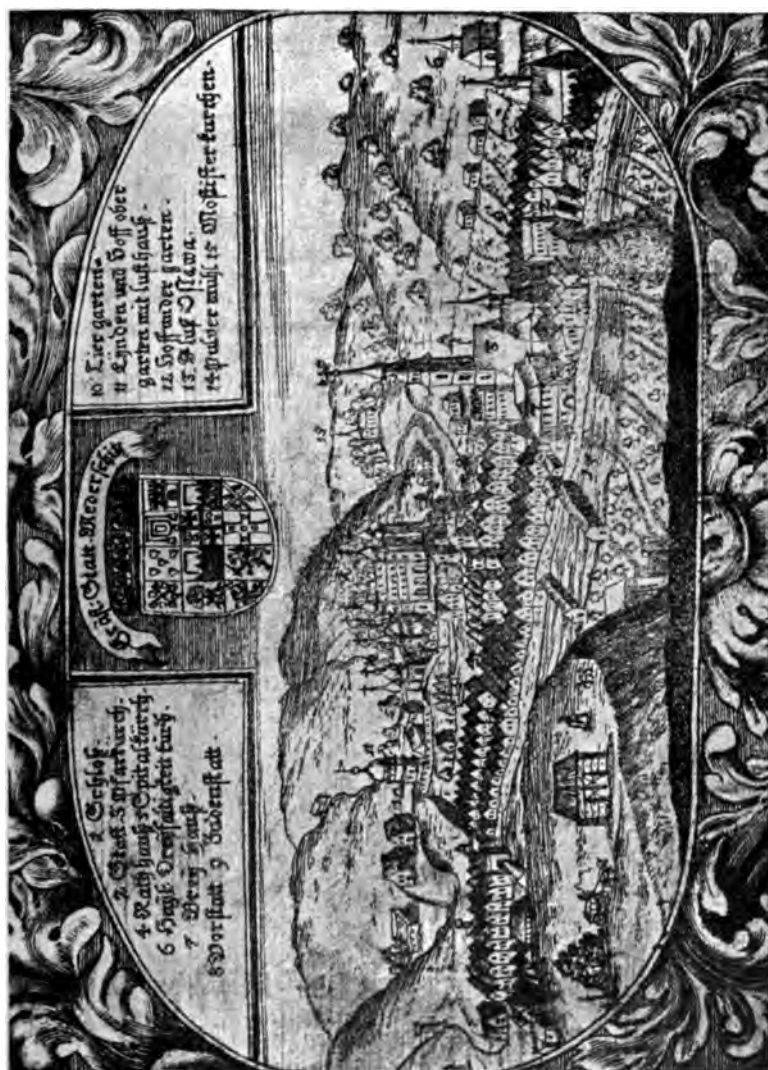 1 Schloß.
2 Statt 3 Pfarrkürch.
4 Rathhauß 5 Spital kürch.
6 Hayl: Dreyfaltigkeit kurch.
7 Brey hauß.
8 Vorstatt 9 Judenstatt.
Statt
10 Tier garten.
11 Lynden und Hoff ober
garten mit lusthauß.
12 Hoff under garten.
13 Fluß Oslawa.
14 Pulver mühl 15 Mostister kurchen.